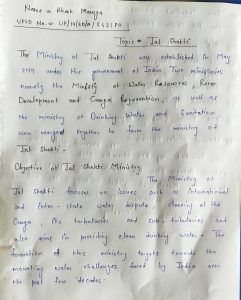 Name → Akash Maurya
UPSD No. →
Topic → Jal Shakti
The Ministry of Jal Shakti was established in May
2019 under the government of India Two ministries
namely the Ministry of Water Resources, River
Development and Ganga Rejuvenation, as well as
the ministry of Drinking Water and Sanitation
were merged together to form the ministry of
Jal Shakti.
Objective of Jal Shakti Ministry
The Ministry of
Jal Shakti focuses on issues such as international
and inter-state water dispute, cleaning of the
Ganga, its tributaries and sub-tributaries and
also aims in providing clean drinking water. The
formation of this ministry targets towards the
mounting water challenges faced by India over
the past few decades.